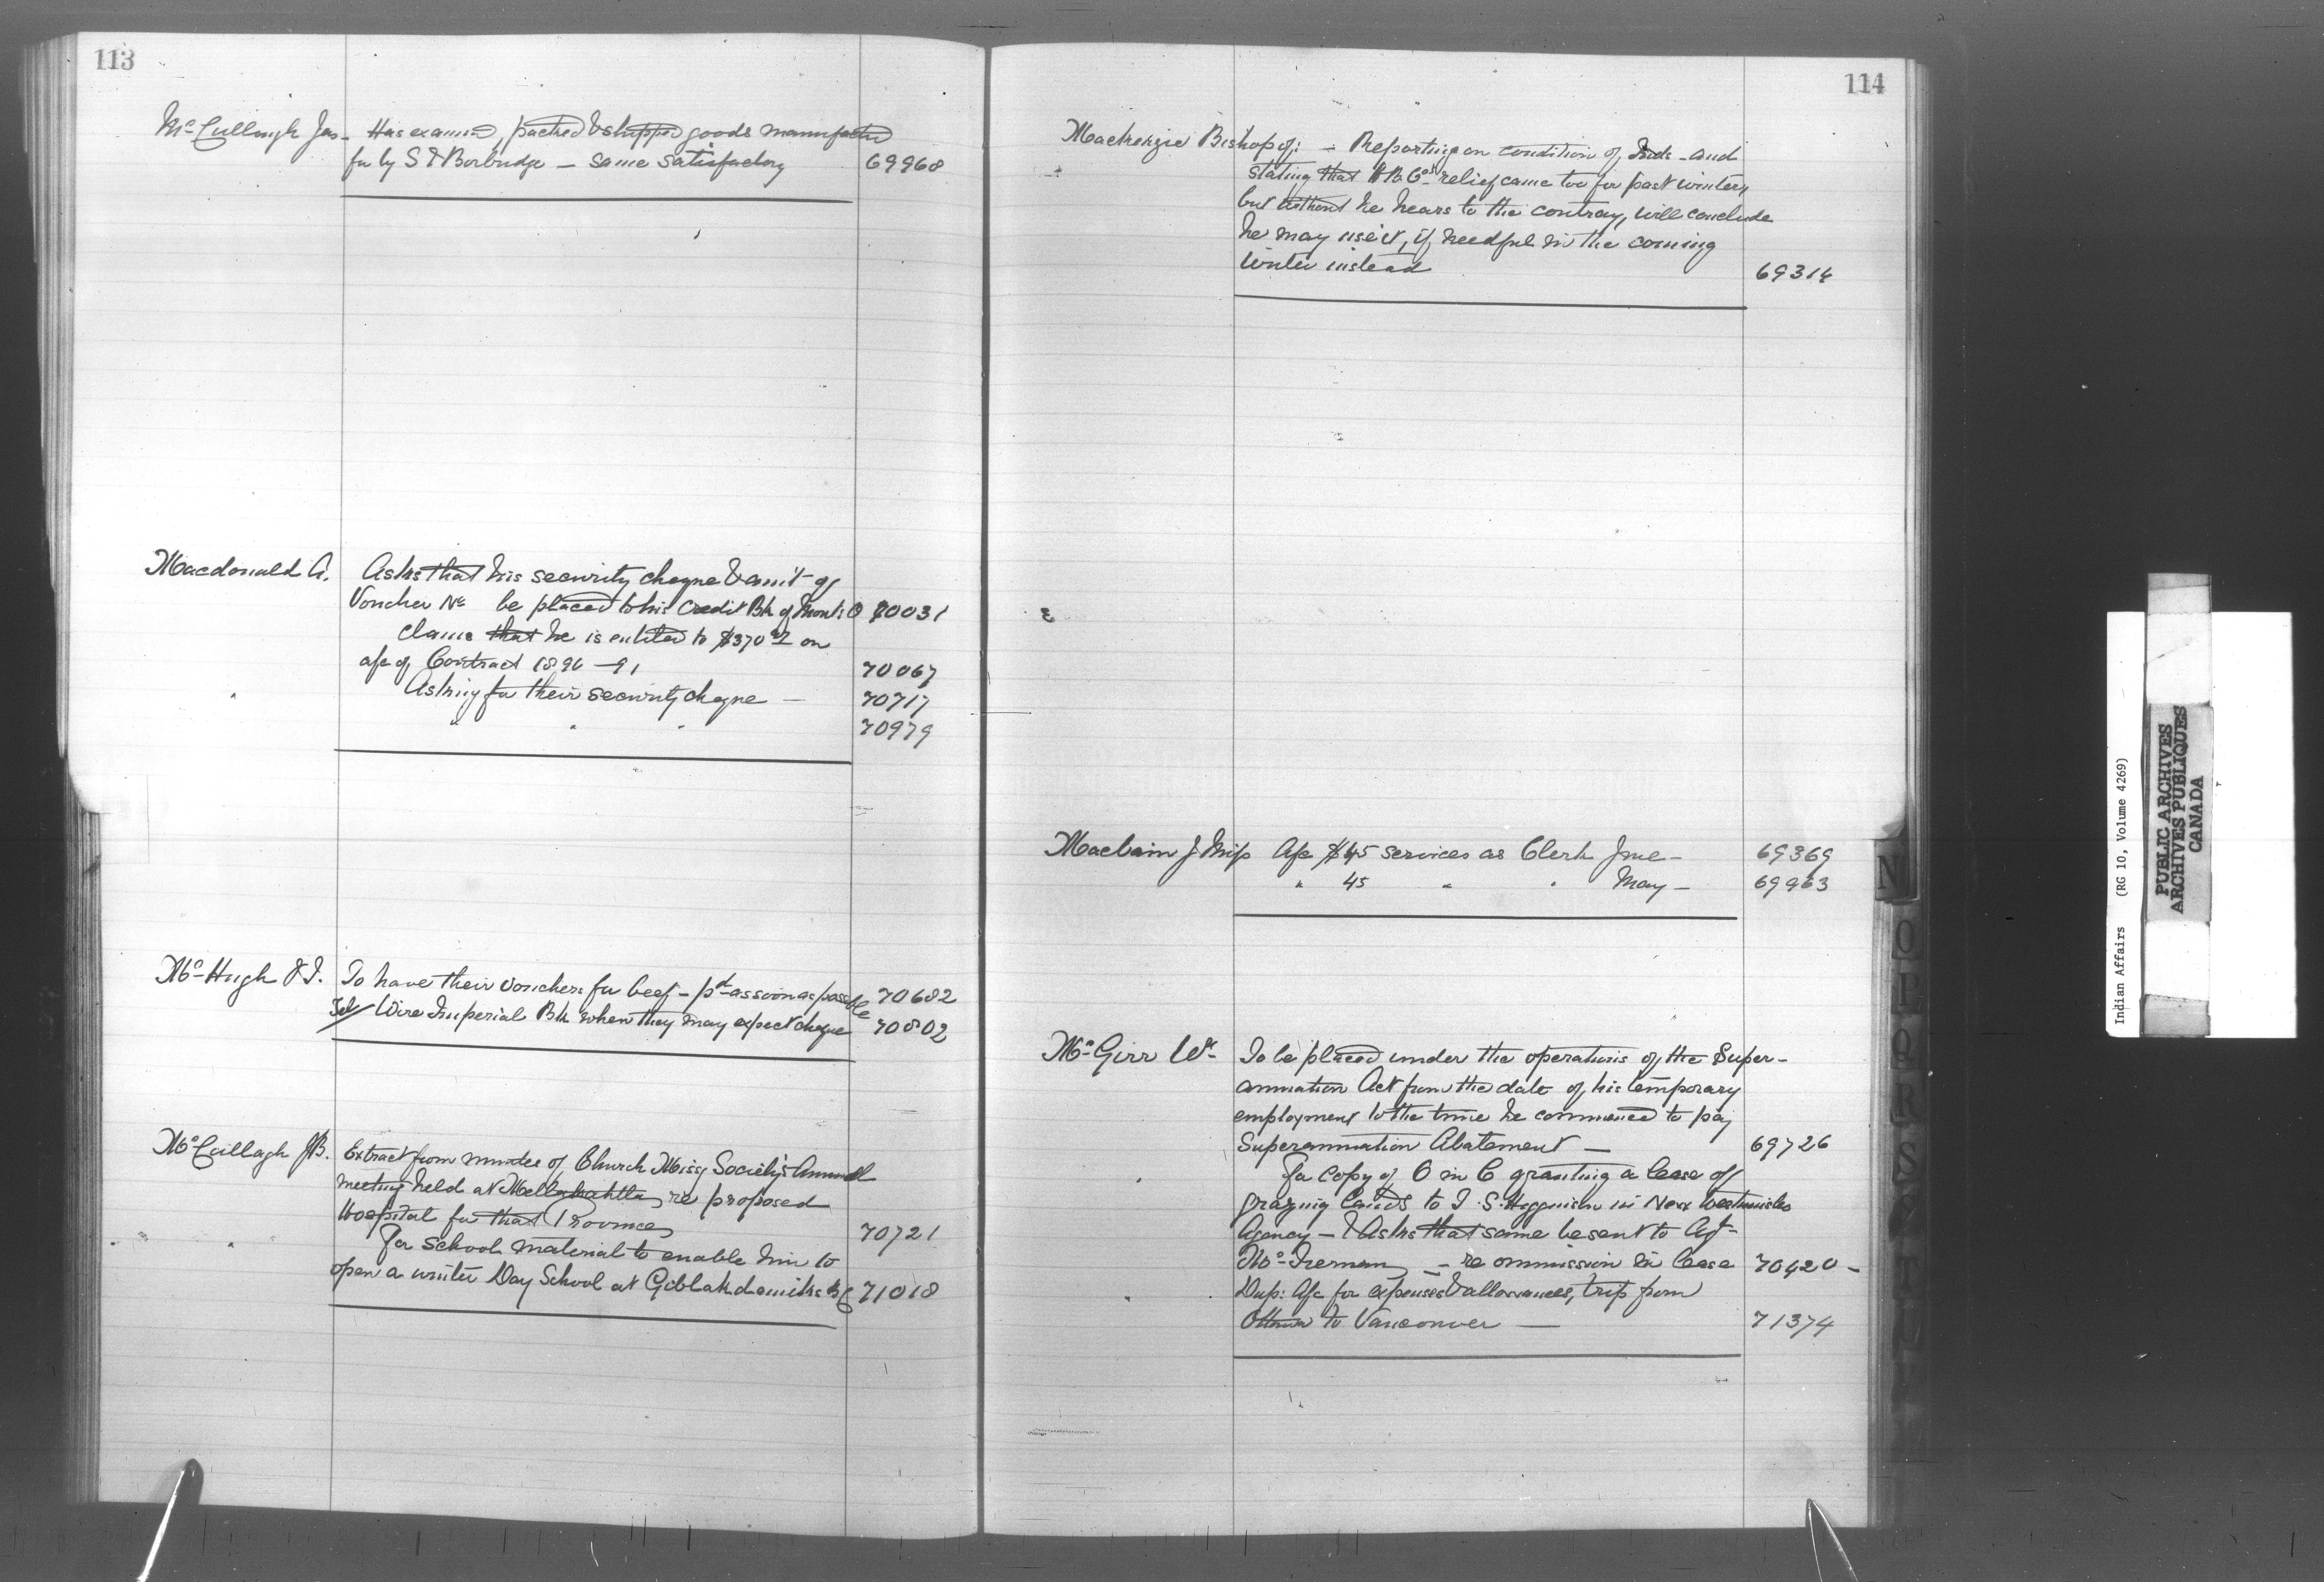 113
McCullough Jas. Has examined, packed & shipped goods manufactd
for by S & Borbridge — same satisfactory 69968
Macdonald A. Asks that his security cheque & amt of
Voucher No be placed to his credit Bk of Montl O 70031
Claims that he is entitled to $370 on
a/c of Contract 1890-91 70067
" Asking for their security cheque — 70717
" " " 70979
McHugh & J. To have their vouchers for beef — pd as soon as possible 70682
Tel/ Wire Imperial Bk when they may expect cheque 70802
McCullagh JB. Extract from minutes of Church Missy Society's Annual
meeting held at Metlakahtla re proposed
Hospital for that Province 70721
" " For school material to enable him to
open a winter Day School at BC 71018
114
Mackenzie Bishop of: — Reporting on condition of Inds — and
stating that H B Cos relief came too for past winter,
but without he hears to the contray, will conclude
he may use it, if needful in the coming
winter instead 69314
Maclean J Miss A/c $45 services as Clerk June — 69369
" 45 " " May — 69963
McGirr Wm To be placed under the operations of the Super-
annuation Act from the date of his temporary
employment to the time he commenced to pay
Superannuation Abatement — 69726
" For copy of O in C granting a lease of
grazing lands to I. S. in New Westminster
Agency — & Asks that same be sent to Agt
McTiernan — re ommission in lease 70420 —
" Dup: A/c for expenses & allowances, trip from
Ottawa to Vancouver — 71374
N
O
Q
R
S
Indian Affairs (RG 10, Volume 4269)
PUBLIC ARCHIVES
ARCHIVES PUBLIQUES
CANADA